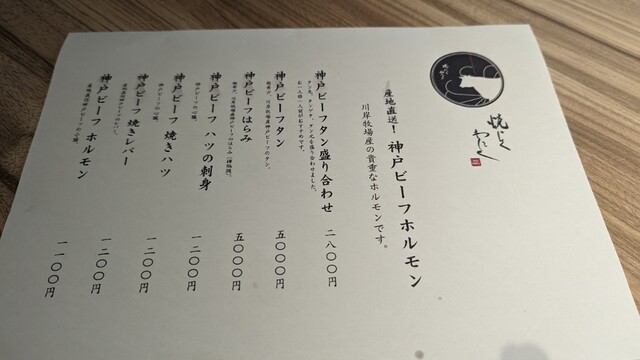 産地直送！神戸ビーフホルモン
川岸牧場産の貴重なホルモンです。
神戸ビーフタン盛り合わせ
二八〇〇円
神戸ビーフタン
五〇〇〇円
神戸ビーフはらみ
五〇〇〇円
神戸ビーフ ハツの刺身
神戸ビーフの心臓。
一二〇〇円
神戸ビーフ 焼きハツ
神戸ビーフの心臓。
一二〇〇円
神戸ビーフ 焼きレバー
一二〇〇円
神戸ビーフ ホルモン
一一〇〇円